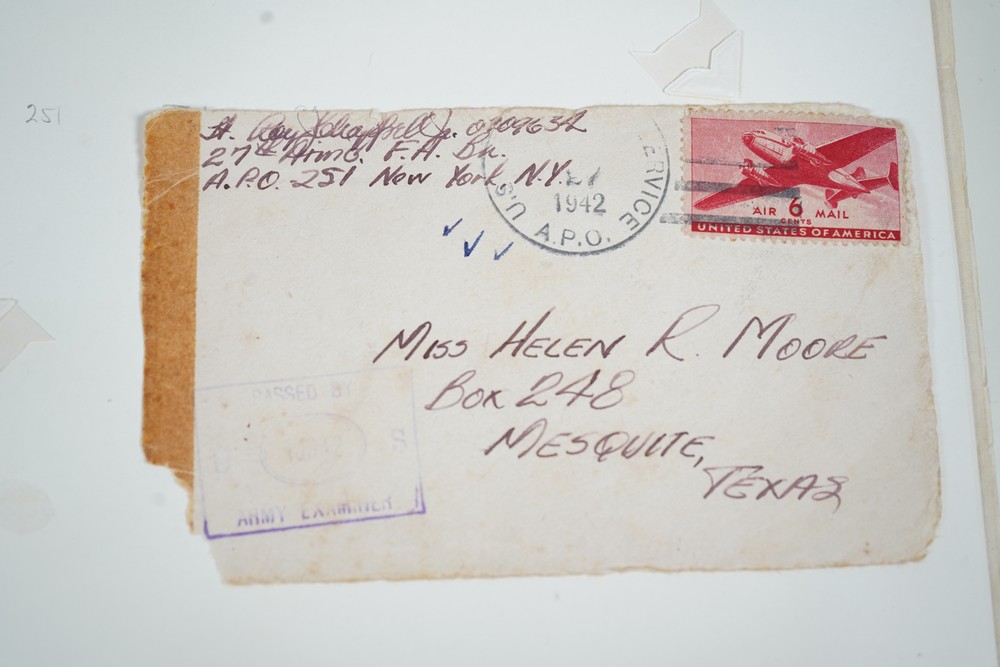 251
Lt. Roy J Chappell Jr. 0409632
27th Armd. F.A. Bn.
A.P.O. 251 New York, N.Y.
U.S. A.P.O. SERVICE
27
1942
AIR 6 MAIL
CENTS
UNITED STATES OF AMERICA
MISS HELEN R. MOORE
BOX 248
MESQUITE,
TEXAS
PASSED BY
U S
ARMY EXAMINER